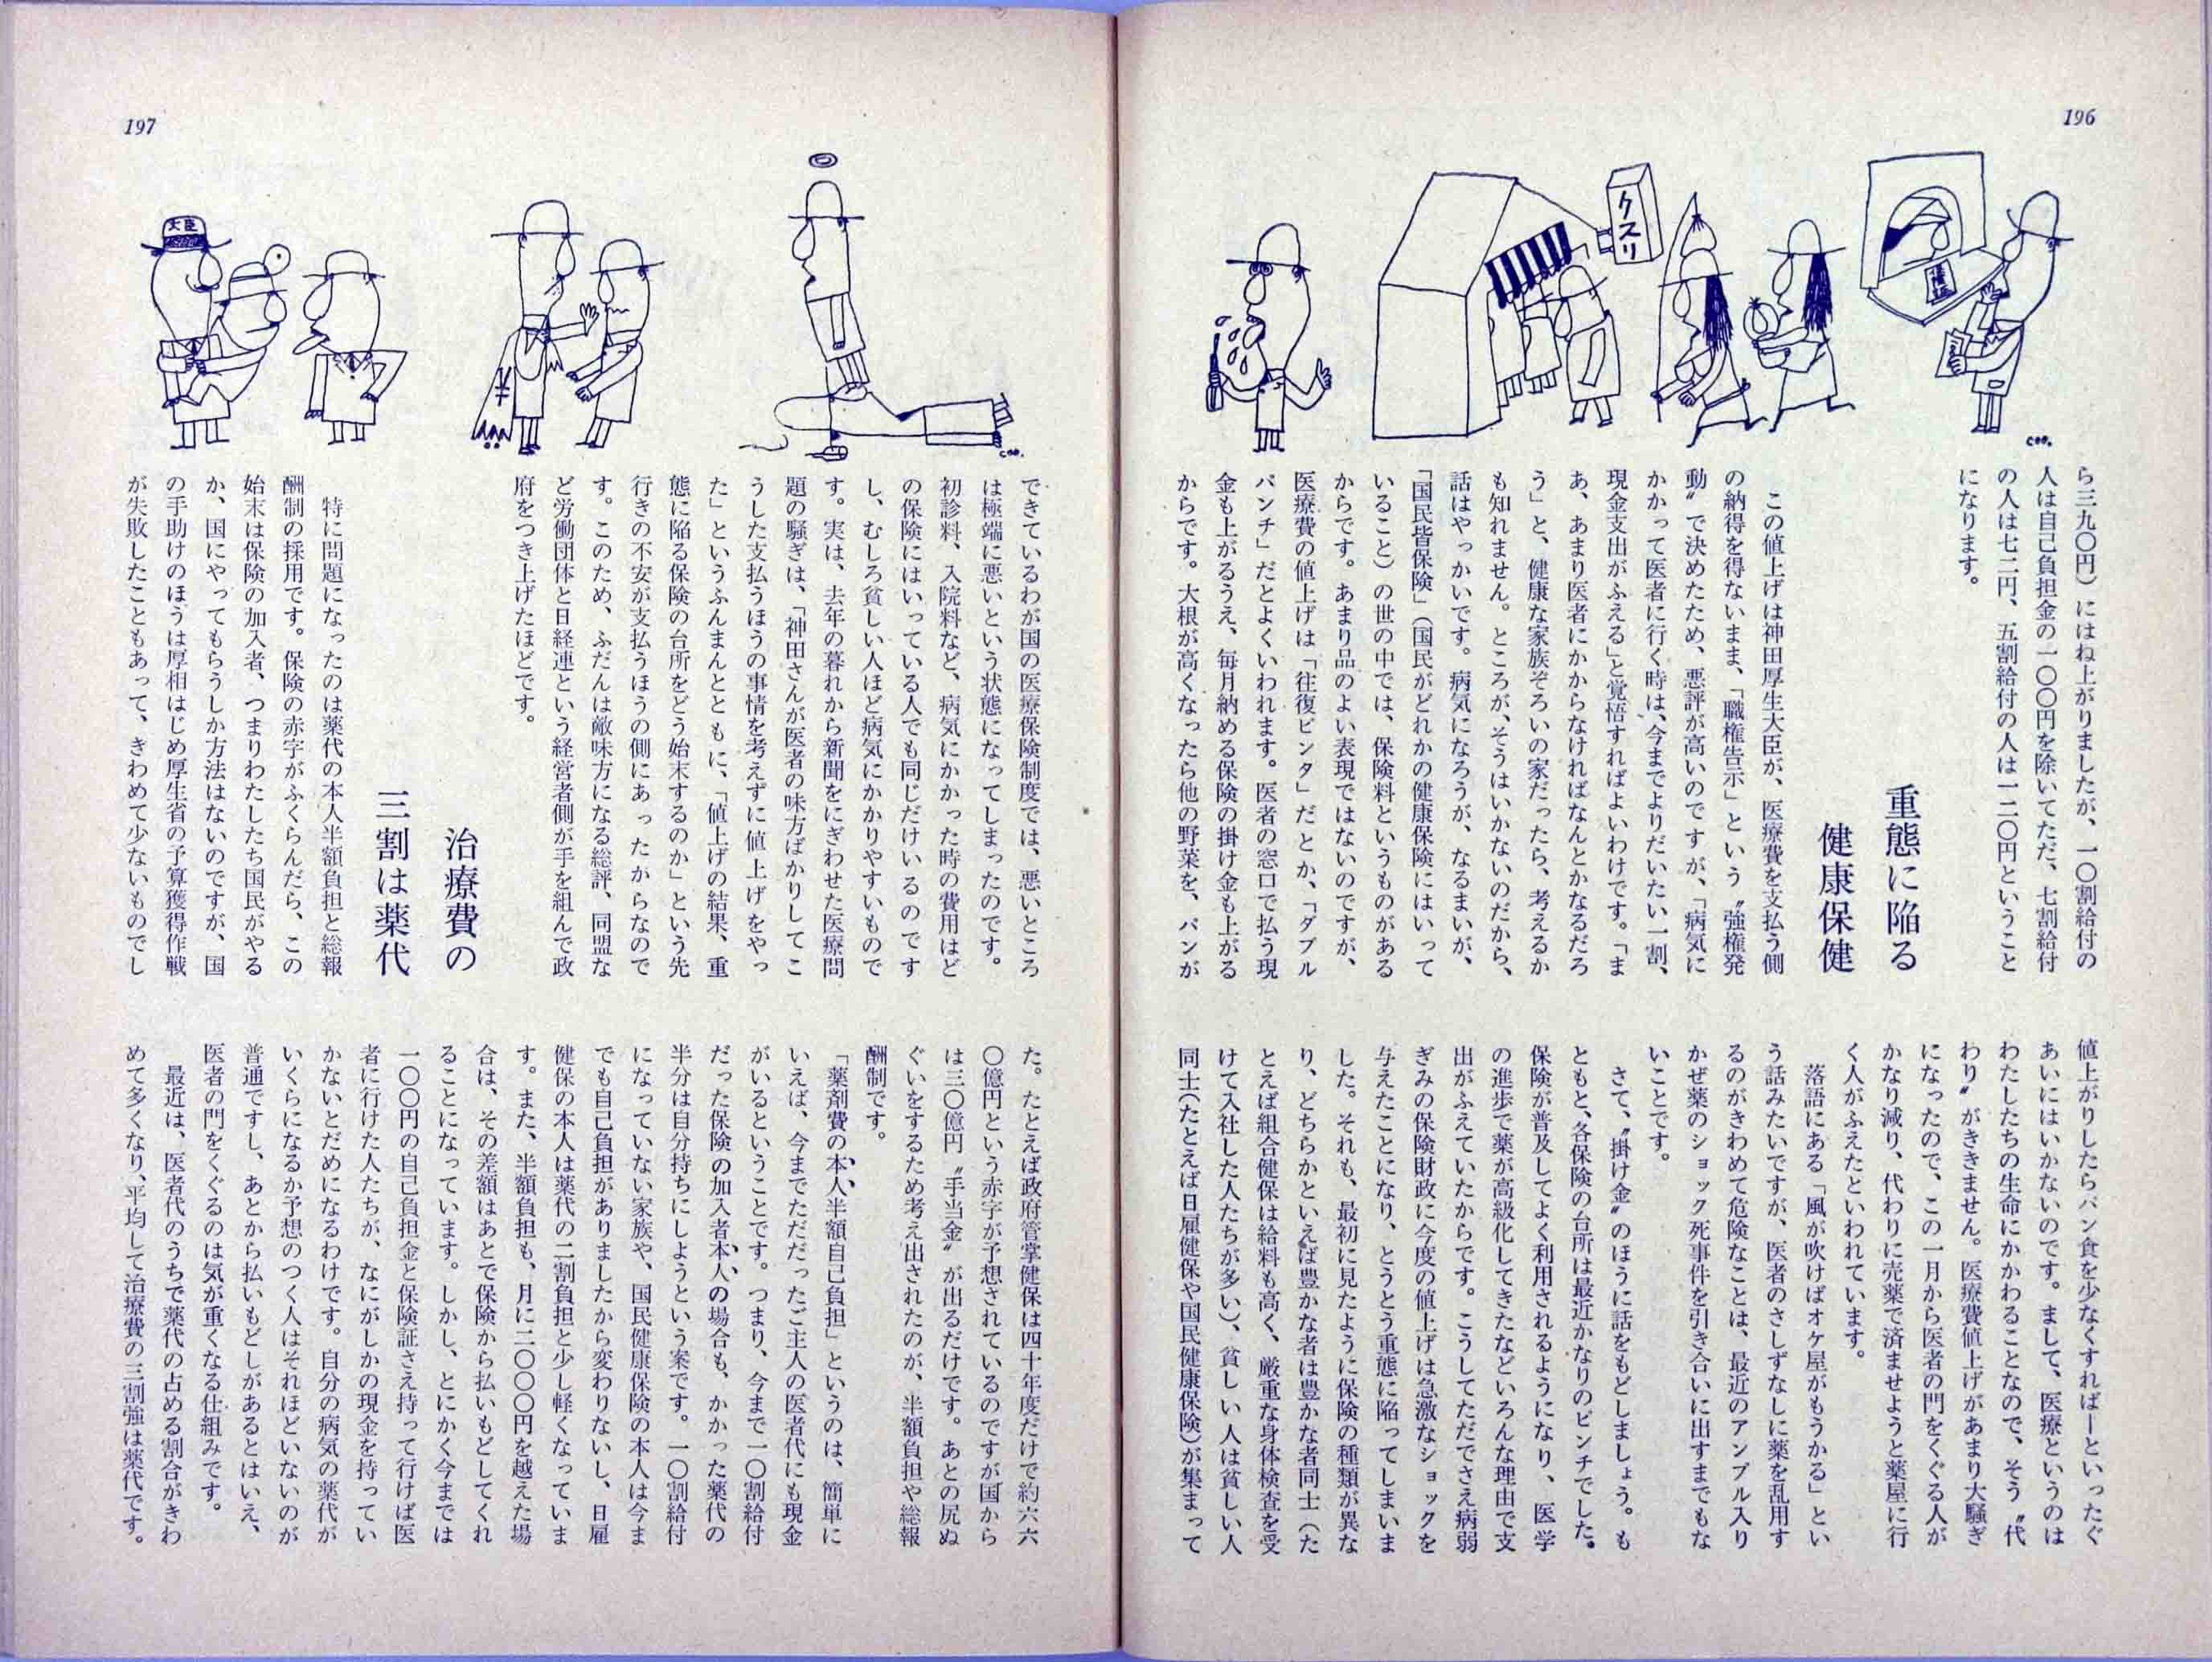 196
クスリ
ら三九〇円）にはね上がりましたが、一〇割給付の
人は自己負担金の一〇〇円を除いてただ、七割給付
の人は七二円、五割給付の人は一二〇円ということ
になります。
重態に陥る
健康保健
この値上げは神田厚生大臣が、医療費を支払う側
の納得を得ないまま、「職権告示」という〝強権発
動〟で決めたため、悪評が高いのですが、「病気に
かかって医者に行く時は、今までよりだいたい一割、
現金支出がふえる」と覚悟すればよいわけです。「ま
あ、あまり医者にかからなければなんとかなるだろ
う」と、健康な家族ぞろいの家だったら、考えるか
も知れません。ところが、そうはいかないのだから、
話はやっかいです。病気になろうが、なるまいが、
「国民皆保険」（国民がどれかの健康保険にはいって
いること）の世の中では、保険料というものがある
からです。あまり品のよい表現ではないのですが、
医療費の値上げは「往復ビンタ」だとか、「ダブル
パンチ」だとよくいわれます。医者の窓口で払う現
金も上がるうえ、毎月納める保険の掛け金も上がる
からです。大根が高くなったら他の野菜を、パンが
値上がりしたらパン食を少なくすれば―といったぐ
あいにはいかないのです。まして、医療というのは
わたしたちの生命にかかわることなので、そう〝代
わり〟がききません。医療費値上げがあまり大騒ぎ
になったので、この一月から医者の門をくぐる人が
かなり減り、代わりに売薬で済ませようと薬屋に行
く人がふえたといわれています。
落語にある「風が吹けばオケ屋がもうかる」とい
う話みたいですが、医者のさしずなしに薬を乱用す
るのがきわめて危険なことは、最近のアンプル入り
かぜ薬のショック死事件を引き合いに出すまでもな
いことです。
さて、〝掛け金〟のほうに話をもどしましょう。も
ともと、各保険の台所は最近かなりのピンチでした。
保険が普及してよく利用されるようになり、医学
の進歩で薬が高級化してきたなどいろんな理由で支
出がふえていたからです。こうしてただでさえ病弱
ぎみの保険財政に今度の値上げは急激なショックを
与えたことになり、とうとう重態に陥ってしまいま
した。それも、最初に見たように保険の種類が異な
り、どちらかといえば豊かな者は豊かな者同士（た
とえば組合健保は給料も高く、厳重な身体検査を受
けて入社した人たちが多い）、貧しい人は貧しい人
同士（たとえば日雇健保や国民健康保険）が集まって
197
大臣
¥
できているわが国の医療保険制度では、悪いところ
は極端に悪いという状態になってしまったのです。
初診料、入院料など、病気にかかった時の費用はど
の保険にはいっている人でも同じだけいるのです
し、むしろ貧しい人ほど病気にかかりやすいもので
す。実は、去年の暮れから新聞をにぎわせた医療問
題の騒ぎは、「神田さんが医者の味方ばかりしてこ
うした支払うほうの事情を考えずに値上げをやっ
た」というふんまんとともに、「値上げの結果、重
態に陥る保険の台所をどう始末するのか」という先
行きの不安が支払うほうの側にあったからなので
す。このため、ふだんは敵味方になる総評、同盟な
ど労働団体と日経連という経営者側が手を組んで政
府をつき上げたほどです。
治療費の
三割は薬代
特に問題になったのは薬代の本人半額負担と総報
酬制の採用です。保険の赤字がふくらんだら、この
始末は保険の加入者、つまりわたしたち国民がやる
か、国にやってもらうしか方法はないのですが、国
の手助けのほうは厚相はじめ厚生省の予算獲得作戦
が失敗したこともあって、きわめて少ないものでし
た。たとえば政府管掌健保は四十年度だけで約六六
〇億円という赤字が予想されているのですが国から
は三〇億円〝手当金〟が出るだけです。あとの尻ぬ
ぐいをするため考え出されたのが、半額負担や総報
酬制です。
「薬剤費の本人半額自己負担」というのは、簡単に
いえば、今までただだったご主人の医者代にも現金
がいるということです。つまり、今まで一〇割給付
だった保険の加入者本人の場合も、かかった薬代の
半分は自分持ちにしようという案です。一〇割給付
になっていない家族や、国民健康保険の本人は今ま
でも自己負担がありましたから変わりないし、日雇
健保の本人は薬代の二割負担と少し軽くなっていま
す。また、半額負担も、月に二〇〇〇円を越えた場
合は、その差額はあとで保険から払いもどしてくれ
ることになっています。しかし、とにかく今までは
一〇〇円の自己負担金と保険証さえ持って行けば医
者に行けた人たちが、なにがしかの現金を持ってい
かないとだめになるわけです。自分の病気の薬代が
いくらになるか予想のつく人はそれほどいないのが
普通ですし、あとから払いもどしがあるとはいえ、
医者の門をくぐるのは気が重くなる仕組みです。
最近は、医者代のうちで薬代の占める割合がきわ
めて多くなり、平均して治療費の三割強は薬代です。